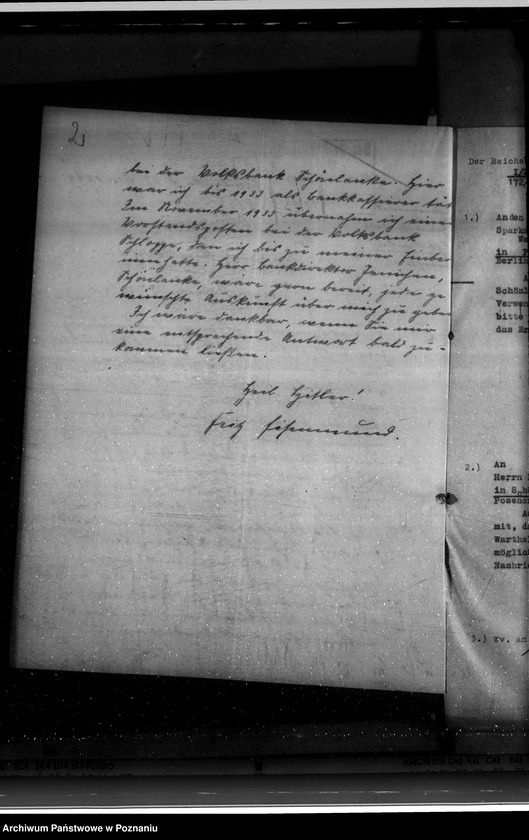 2
bei der Volksbank Schönlanke. Hier
war ich bis 1933 als Bankkassierer tät
Im November 1933 übernahm ich einen
Vorstandsposten bei der Volksbank
Schloppe, den ich bis zu meiner Einber
innehatte. Herr Bankdirektor Jenichen,
Schönlanke, wäre gern bereit, jede ge
wünschte Auskunft über mich zu geben
Ich wäre dankbar, wenn Sie mir
eine entsprechende Antwort bald zu-
kommen ließen.
Heil Hitler!
Fritz Eisenmund.
Der Reichs
172
1.) Anden
Sparka
Wa
in P
Berlin
Schönl
Verwen
bitte
das Er
2.) An
Herrn
in Sch
Posene
mit, da
Warthe
möglic
Nachri
3.) Wv. an
Archiwum Państwowe w Poznaniu